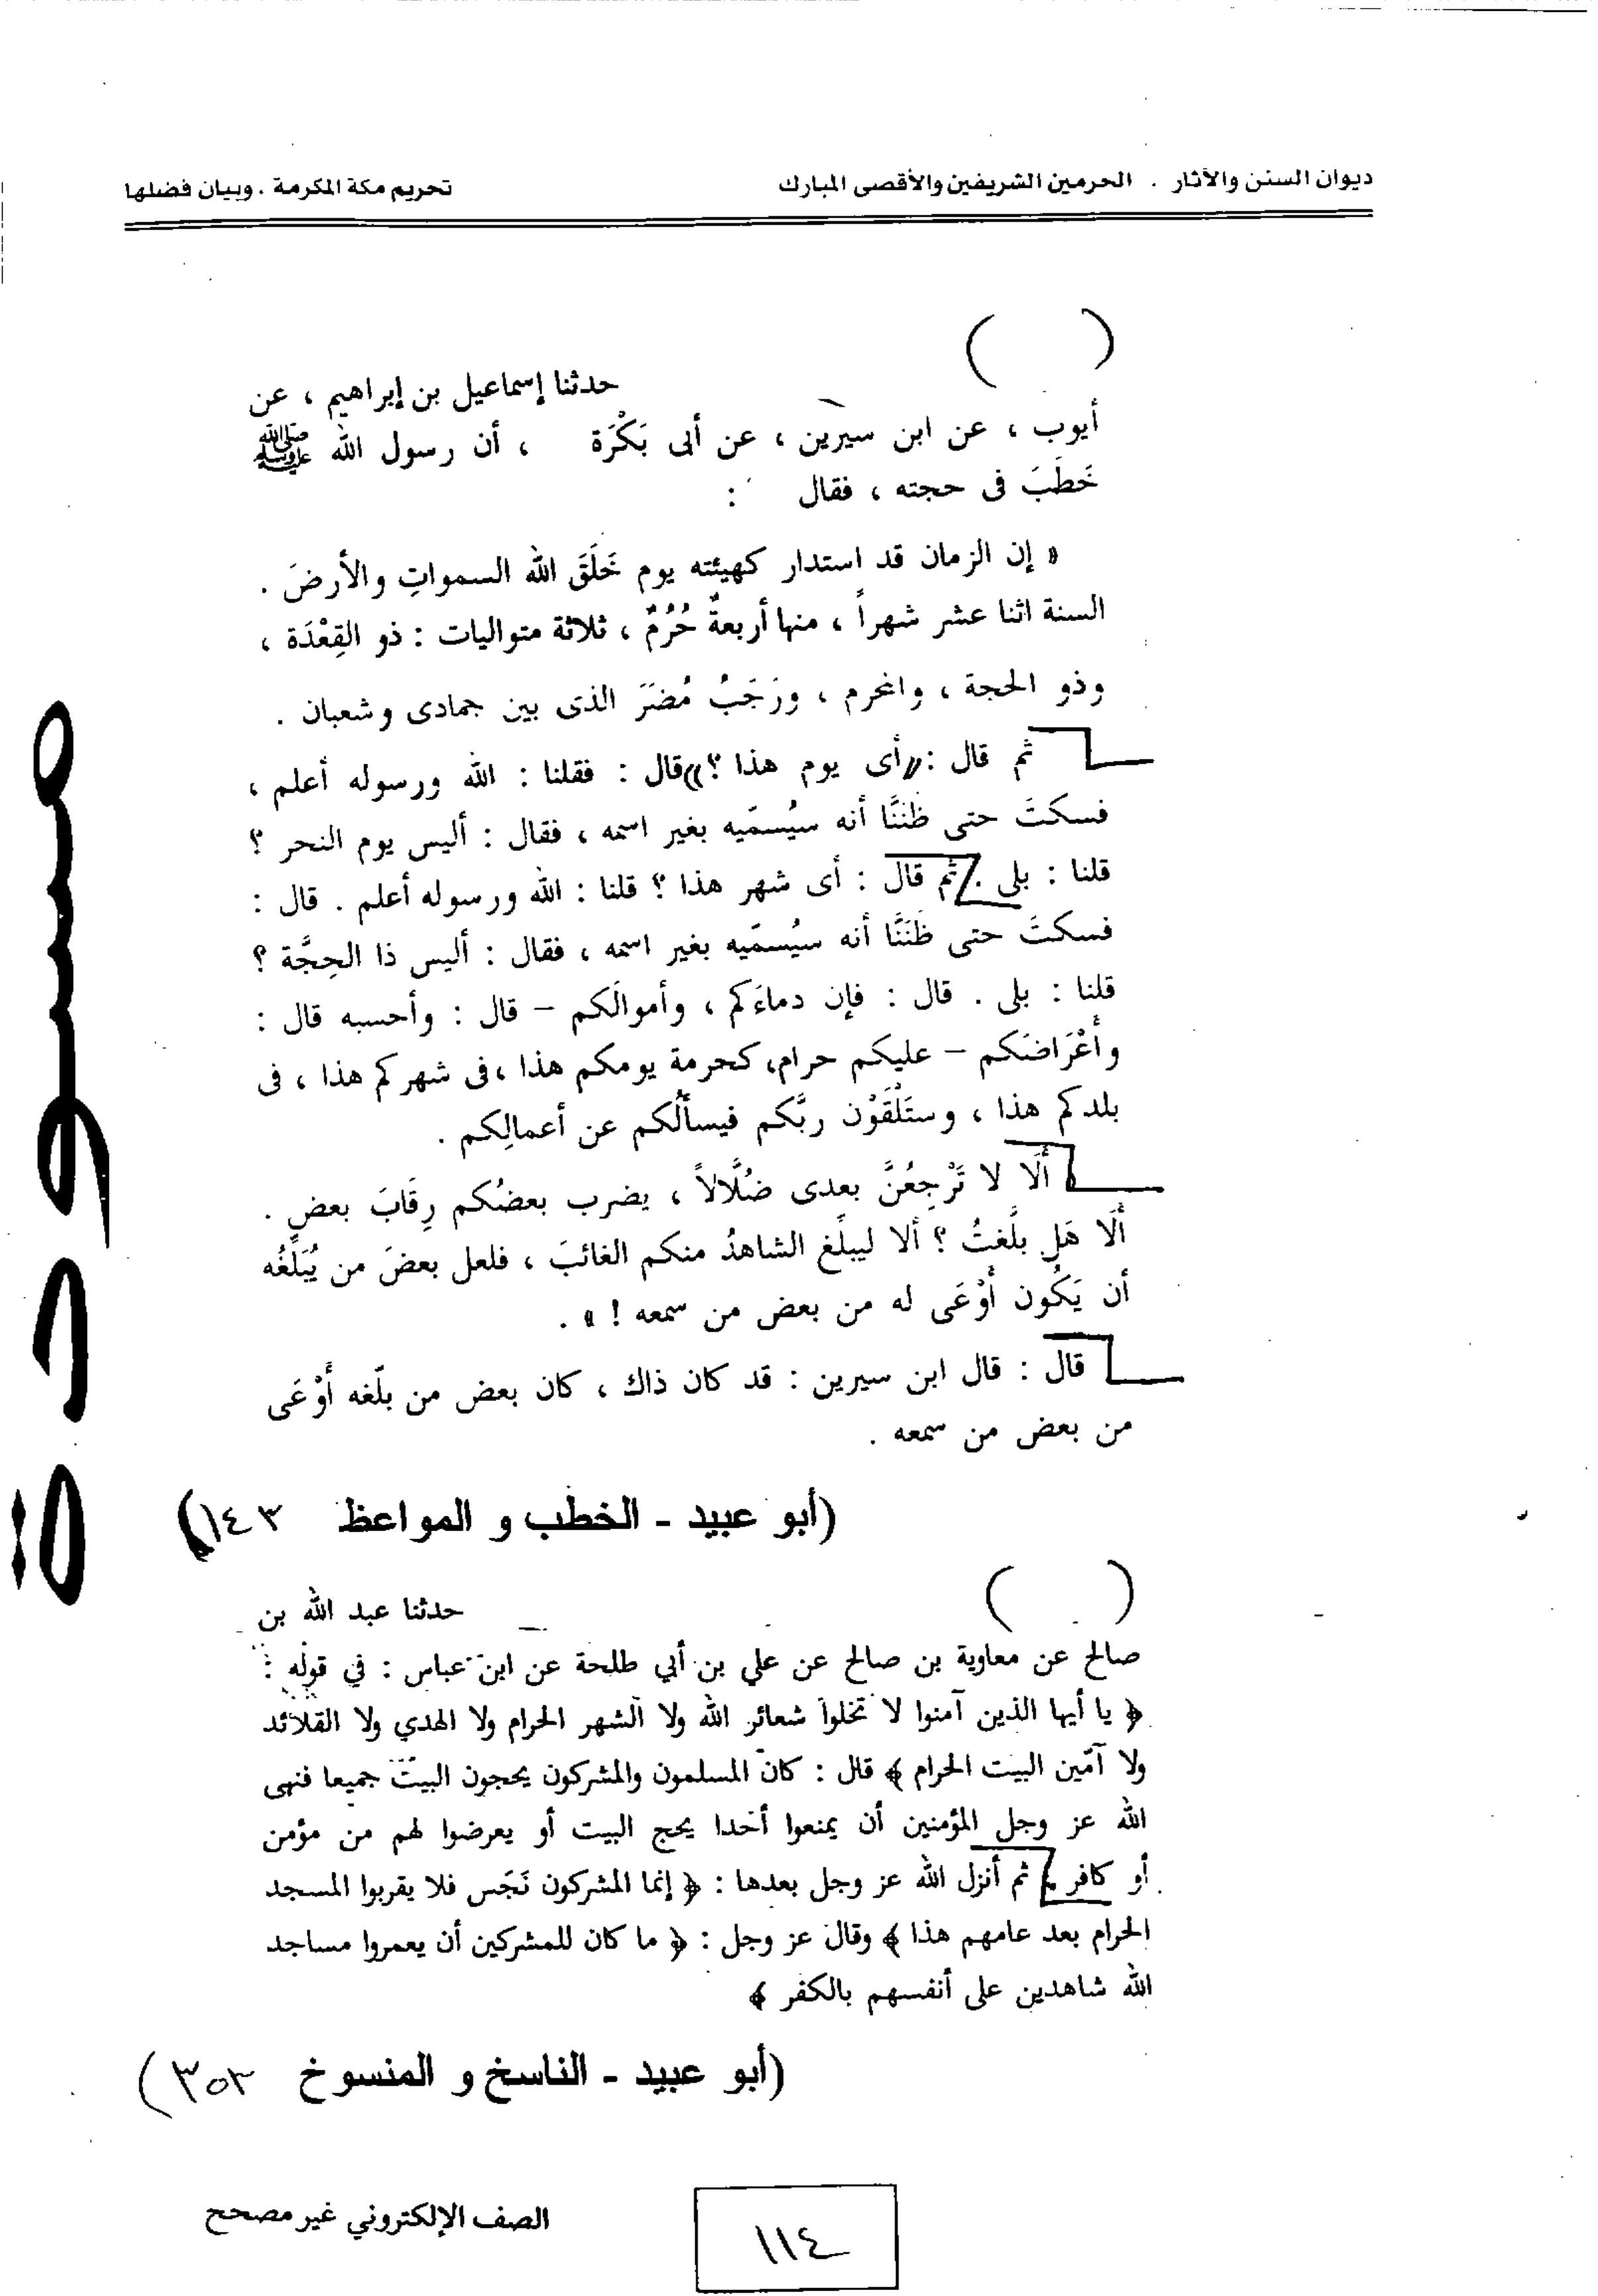 ديوان السنن والآثار . الحرمين الشريفين والأقصى المبارك
تحريم مكة المكرمة . وبيان فضلها
( )
حدثنا إسماعيل بن إبراهيم ، عن
أيوب ، عن ابن سيرين ، عن أبى بَكْرَة ، أن رسول الله ﷺ
خَطَبَ فى حجته ، فقال :
« إن الزمان قد استدار كهيئته يوم خَلَقَ الله السمواتِ والأرضَ .
السنة اثنا عشر شهراً ، منها أربعةٌ حُرُمٌ ، ثلاثة متواليات : ذو القِعْدَة ،
وذو الحجة ، والمحرم ، ورَجَبُ مُضَرَ الذى بين جمادى وشعبان .
ثم قال : «أى يوم هذا ؟» قال : فقلنا : الله ورسوله أعلم ،
فسكتَ حتى ظَنَنَّا أنه سيُسمّيه بغير اسمه ، فقال : أليس يوم النحر ؟
قلنا : بلى . ثم قال : أى شهر هذا ؟ قلنا : الله ورسوله أعلم . قال :
فسكتَ حتى ظَنَنَّا أنه سيُسمّيه بغير اسمه ، فقال : أليس ذا الحِجَّة ؟
قلنا : بلى . قال : فإن دماءَكم ، وأموالَكم – قال : وأحسبه قال :
وأَعْرَاضَكم – عليكم حرام، كحرمة يومكم هذا ، فى شهركم هذا ، فى
بلدكم هذا ، وستَلْقَوْن ربَّكم فيسألُكم عن أعمالِكم .
أَلَا لا تَرْجِعُنَّ بعدى ضُلَّالاً ، يضرب بعضُكم رِقَابَ بعضٍ .
أَلَا هَل بلَّغتُ ؟ ألا ليبلِّغ الشاهدُ منكم الغائبَ ، فلعل بعضَ من يُبَلَّغُه
أن يَكُون أَوْعَى له من بعض من سمعه ! » .
قال : قال ابن سيرين : قد كان ذاك ، كان بعض من بلّغه أَوْعَى
من بعض من سمعه .
(أبو عبيد - الخطب و المواعظ ١٤٣)
( )
حدثنا عبد الله بن
صالح عن معاوية بن صالح عن علي بن أبي طلحة عن ابن عباس : في قوله :
﴿ يا أيها الذين آمنوا لا تحلوا شعائر الله ولا الشهر الحرام ولا الهدي ولا القلائد
ولا آمّين البيت الحرام ﴾ قال : كان المسلمون والمشركون يحجون البيت جميعا فنهى
الله عز وجل المؤمنين أن يمنعوا أحدا يحج البيت أو يعرضوا لهم من مؤمن
أو كافر ثم أنزل الله عز وجل بعدها : ﴿ إنما المشركون نَجَس فلا يقربوا المسجد
الحرام بعد عامهم هذا ﴾ وقال عز وجل : ﴿ ما كان للمشركين أن يعمروا مساجد
الله شاهدين على أنفسهم بالكفر ﴾
(أبو عبيد - الناسخ و المنسوخ ٣٥٢)
الصف الإلكتروني غير مصحح
١١٤
مسودة